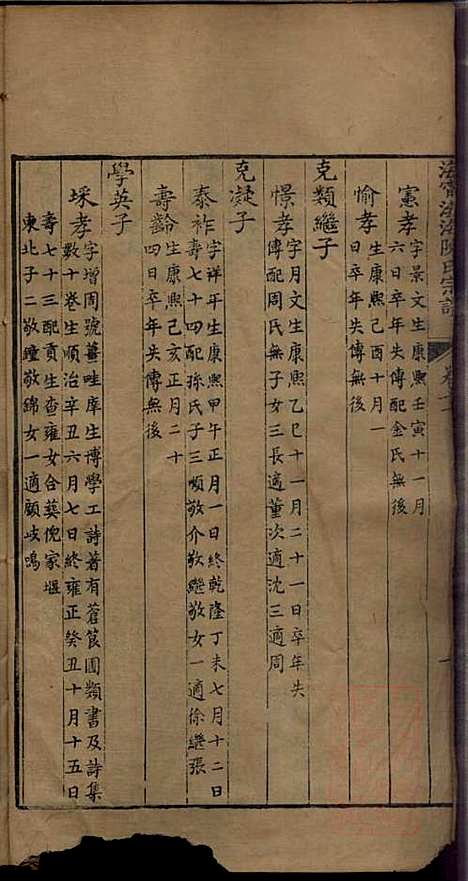 海寧渤海陳氏宗譜
憲孝
字景文生康熙壬寅十一月
六日卒年失傳配金氏無後
愉孝
生康熙己酉十月一
日卒年失傳無後
克類繼子
憬孝
字月文生康熙乙巳十一月二十一日卒年失
傳配周氏無子女三長適董次適沈三適周
克凝子
泰祚
字祥年生康熙甲午正月一日終乾隆丁未七月十二日
壽七十四配孫氏子三順敬介敬繼敬女一適徐繼張
壽齡
生康熙己亥正月二十
四日卒年失傳無後
學英子
埰孝
字增周號薑畦庠生博學工詩著有蒼筤圃類書及詩集
數十卷生順治辛丑六月七日終雍正癸丑十月十五日
壽七十三配貢生查雍女合葬倪家堰
東北子二敬鐘敬錦女一適顧歧鳴